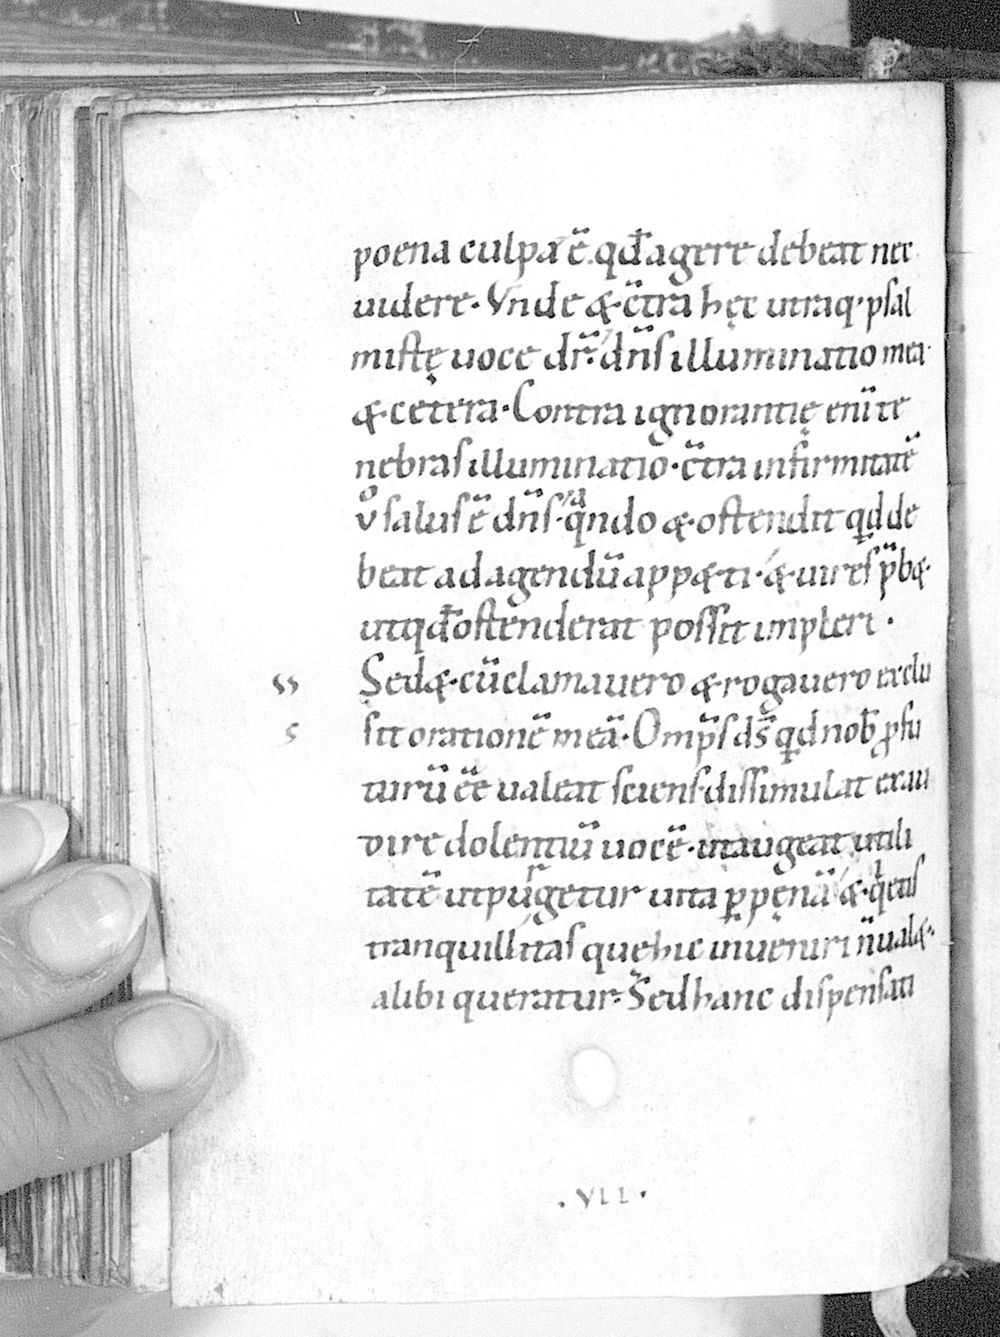 poena culpaꝰ ē. qđ agere debeat nec
uidere. Vnde & c̄tra hęc utraq; psal
mistę uoce dr̄. dn̄s illuminatio mea
& cetera. Contra ignorantię eni te
nebras illuminatio. c̄tra infirmitatē
v̊ salus ē dn̄s. qᷓndo & ostendit qđ de
beat ad agendū app&ti. & uires p̄b&
ut qđ ostenderat possit impleri.
ss Sed & cū clamauero & rogauero exclu
s sit orationē meā. Omp̄s ds̄ qđ nob̄ ꝓfu
turū ēē ualeat sciens dissimulat exau
dire dolentiū uocē. ut augeat utili
tatē ut purgetur uita ꝑ pęnā & quietis
tranquillitas que hic inueniri n̄ ual&.
alibi queratur. Sed hanc dispensati
. VII .